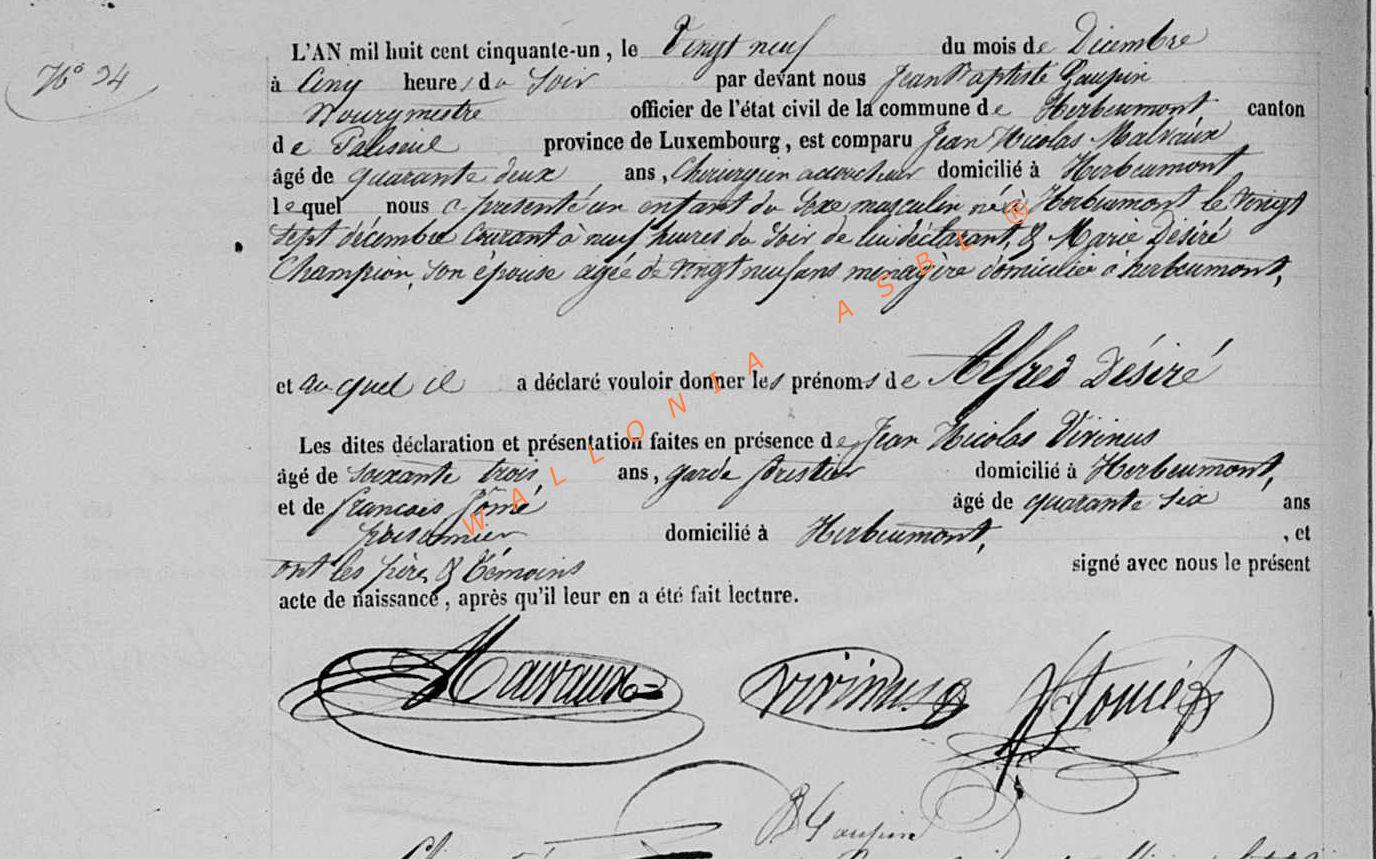 L'AN mil huit cent cinquante-un, le Vingt neuf du mois de Décembre
N° 24
à Cinq heures du Soir par devant nous Jean Baptiste Gaupin
Bourgmestre officier de l'état civil de la commune de Herbeumont canton
de Paliseul province de Luxembourg, est comparu Jean Nicolas Malvaux
âgé de quarante deux ans, Chirurgien accoucheur domicilié à Herbeumont
lequel nous a présenté un enfant du sexe masculin né à Herbeumont le vingt
sept décembre Courant à neuf heures du Soir de lui déclarant, & Marie Désiré
Champion, son épouse agée de vingt neuf ans menagère domicilié à herbeumont,
et auquel il a déclaré vouloir donner les prénoms de Alfred Désiré
Les dites déclaration et présentation faites en présence de Jean Nicolas Virinus
âgé de soixante trois, ans, garde forestier domicilié à Herbeumont,
et de francois âgé de quarante six ans
domicilié à Herbeumont, , et
ont les père & témoins signé avec nous le présent
acte de naissance, après qu'il leur en a été fait lecture.
Malvaux Virinus
Gaupin
WALLONIA ASBL ®